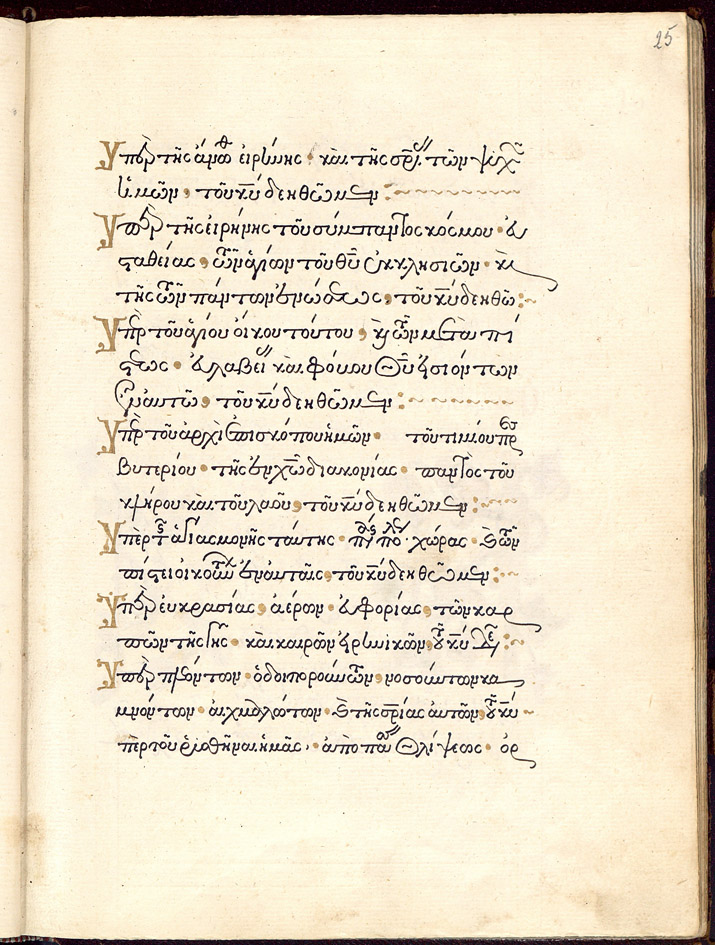 25
Ὑπὲρ τῆς ἄνωθ εἰρήνης · καὶ τῆς σρίας τῶν ψυχῶν
ἡμῶν, τοῦ κυ δεηθῶμεν:
Ὑπὲρ τῆς εἰρήνης τοῦ σύμπαντος κόσμου · εὐ
σταθείας, τῶν ἁγίων τοῦ θυ ἐκκλησιῶν · καὶ
τῆς τῶν πάντων ἑνώσεως, τοῦ κυ δεηθῶ:
Ὑπὲρ τοῦ ἁγίου οἴκου τούτου, καὶ τῶν μετὰ πί
στεως · εὐλαβείας καὶ φόβου θυ εἰσιόντων
ἐν αὐτῶ, τοῦ κυ δεηθῶμεν:
Ὑπὲρ τοῦ ἀρχιεπισκόπου ἡμῶν · τοῦ τιμίου πρεσ
βυτερίου · τῆς ἐν χω διακονίας · παντὸς τοῦ
κλήρου καὶ τοῦ λαοῦ, τοῦ κυ δεηθῶμεν:
Ὑπὲρ τῆς ἁγίας μονῆς ταύτης · πάσης πόλεως · χώρας · καὶ τῶν
πίστει οἰκούντων ἐν αὐταῖς, τοῦ κυ δεηθῶμεν:
Ὑπὲρ εὐκρασίας, ἀέρων · εὐφορίας, τῶν καρ
πῶν τῆς γῆς · καὶ καιρῶν εἰρηνικῶν, τοῦ κυ δε:
Ὑπὲρ πλεόντων · ὁδοιπορούντων, νοσούντων κα
μνόντων · αἰχμαλώτων · καὶ τῆς σρίας αὐτῶν, τοῦ κυ
πὲρ τοῦ ῥυσθῆναι ἡμᾶς · ἀπὸ πάσης θλίψεως · ὀρ